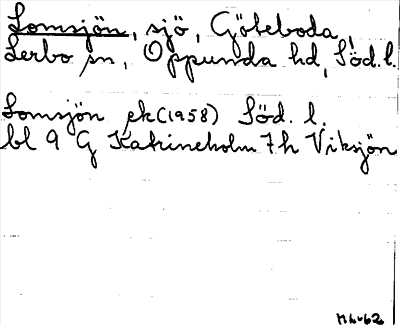 Lomsjön, sjö, Göteboda,
Lerbo sn, Oppunda hd, Söd. l.
Lomsjön ek (1958) Söd. l.
bl 9 G Katrineholm 7h Viksjön